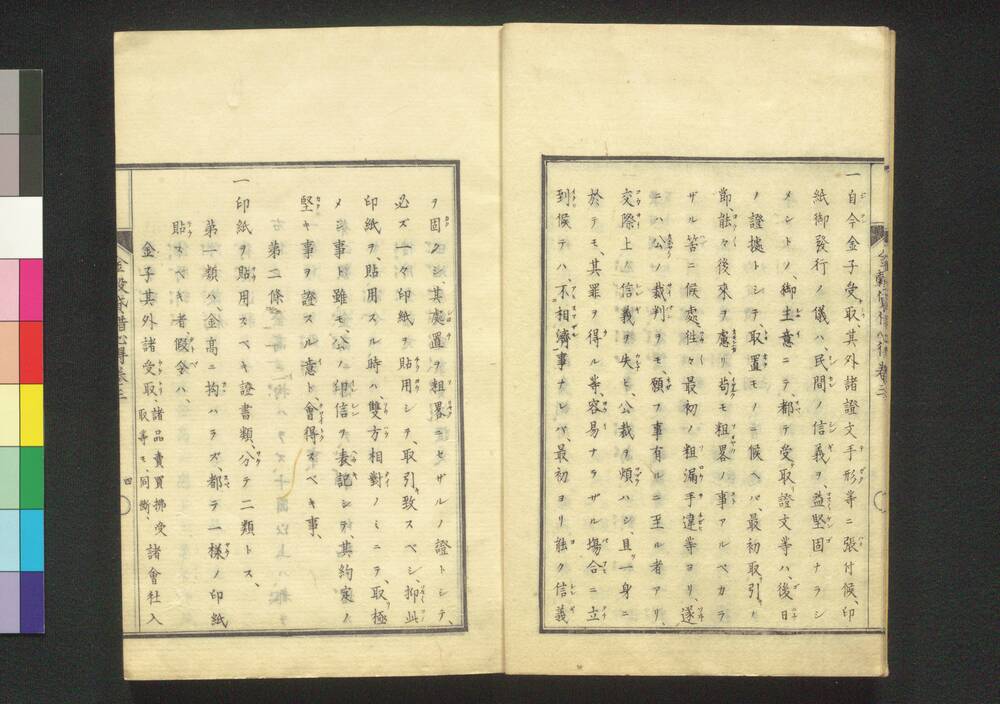 一自今金子受取、其外諸證文手形等ニ張付候、印
紙御發行ノ儀ハ、民間ノ信義ヲ、益堅固ナラシ
メントノ、御主意ニテ、都テ受取證文等ハ、後日
ノ證據トシテ、取置モノニ候ヘバ、最初取引ノ
節、能々後來ヲ慮リ、苟モ粗畧ノ事アルベカラ
ザル筈ニ候處、徃々最初ノ粗漏手違等ヨリ、遂
ニハ公ノ裁判ヲモ、願フ事有ルニ至ル者アリ、
交際上ノ信義ヲ失ヒ、公裁ヲ煩ハシ、且ツ一身ニ
於テモ、其罪ヲ得ル等、容易ナラザル塲合ニ立
到候テハ、不相濟事ナレバ、最初ヨリ能ク信義
ヲ固クシ、其處置ヲ粗畧ニセザルノ證トシテ、
必ズ一々印紙ヲ貼用シテ、取引致スベシ、抑此
印紙ヲ、貼用スル時ハ、雙方相對ノミニテ、取極
メシ事ト雖モ、公ノ印信ヲ表記シテ、其約定ノ
堅キ事ヲ證スル意ト、會得スベキ事、
第二條
一印紙ヲ貼用スベキ證書類、分テ二類トス、
第一類ハ、金高ニ拘ハラズ、都テ一樣ノ印紙
貼スベキ者、假令ハ、
金子其外諸受取、諸品賣買拂受取等モ、同斷、諸會社入
金穀貸借心得卷三
四